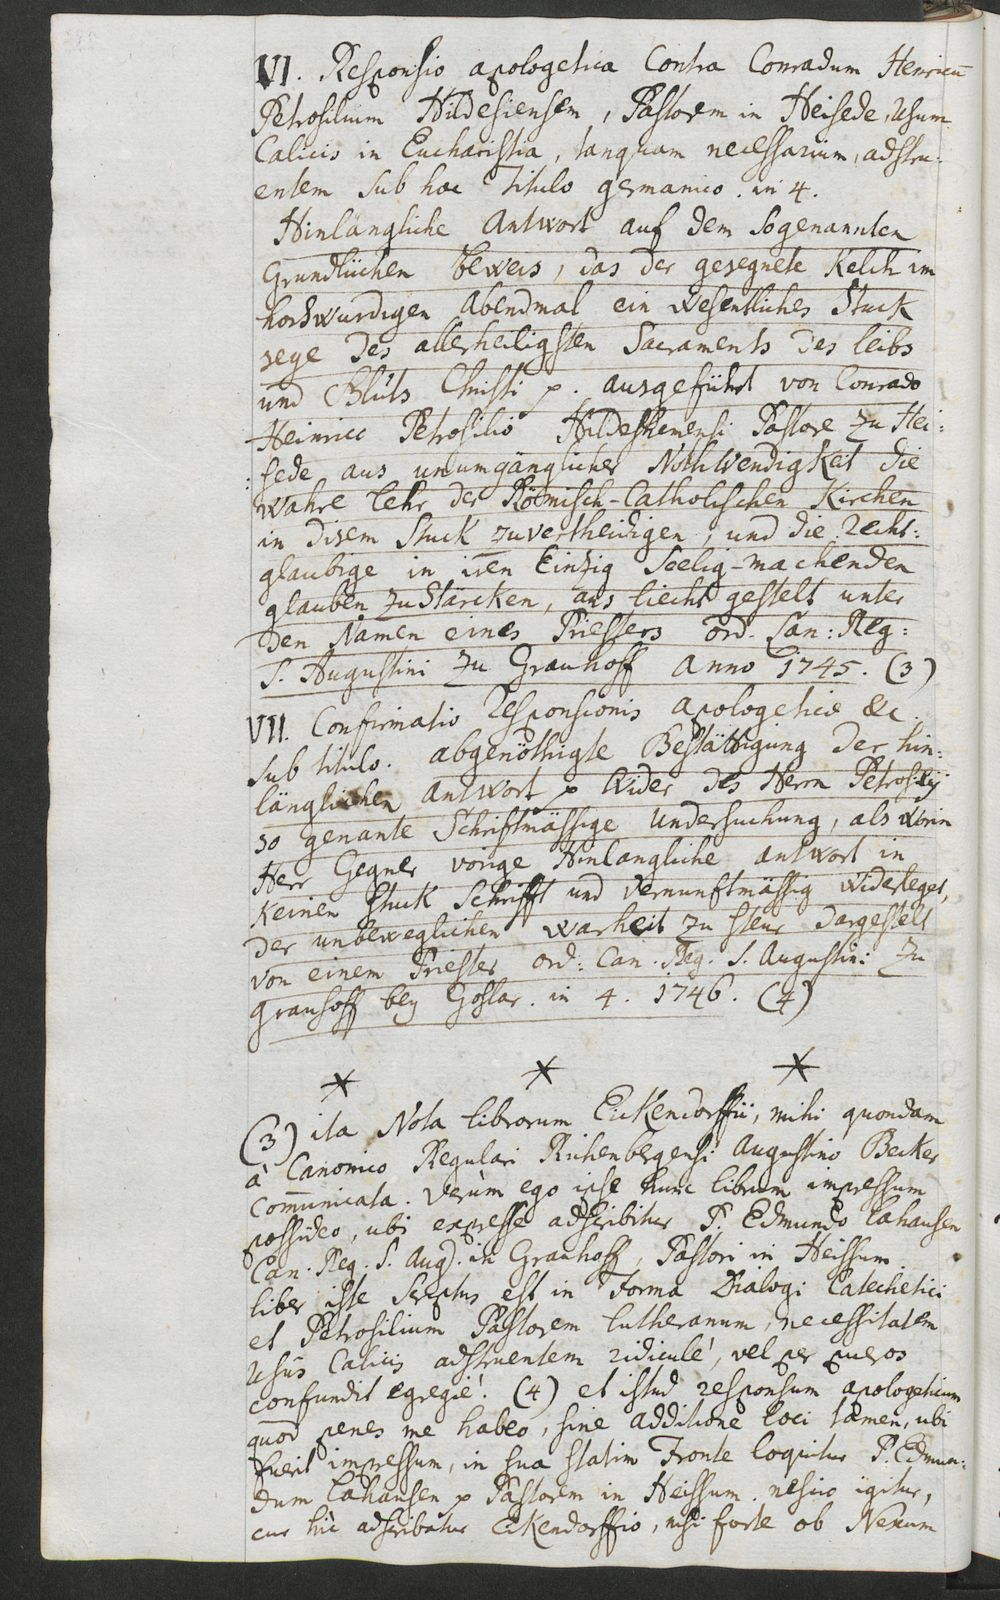 VI. Responsio apologetica Contra Conradum Henricū
Petrosilium Hildesiensem, Pastorem in Heisede, Usum
Calicis in Eucharistia, tanquam necessarium, adstru-
entem sub hoc titulo germanico. in 4.
Hinlängliche Antwort auf dem sogenannten
Grundlüchen beweis, das der gesegnete Kelch im
hochwurdigen Abendmal ein wesentliches Stuck
seye des allerheiligsten Sacraments des leibs
und Bluts Christi p. ausgeführt von Conrado
Heinrico Petrosilio Hildeshemensi Pastore zu Hei:
:sede aus unumgänglicher Nothwendigkeit die
wahre lehr der Römisch-Catholischen Kirchen
in disem Stuck zuvertheidigen, und die Recht:
glaubige in iren Einzig Seelig-machenden
glauben zu Stärcken, ans liecht gestelt unter
den Namen eines Priesters ord. Can: Reg:
S. Augustini zu Grauhoff Anno 1745. (3)
VII. Confirmatio Responsionis apologeticæ &c.
sub titulo. abgenöthigte Bestättigung der hin:
länglichen Antwort p wider des Herrn Petrosilij
so genante Schriftmässige Undersuchung, als worin
Herr Gegner vorige Hinlangliche antwort in
Keinen Stuck Schrifft und vernunftmässig widerleget,
der unbeweglichen warheit zu steur dargestelt
von einem Priester ord: Can. Reg. S. Augustini zu
grauhoff bey Goslar. in 4. 1746. (4)
* * *
(3) ita Nota librorum Eickendorffii, mihi quondam
à Canonico Regulari Richenbergensi Augustino Becker
com̄unicata. Verùm ego ipse hunc librum impressum
possideo, ubi expresse adscribitur P. Edmundo Lahausen
Can. Reg. S. Aug. in Grauhoff, Pastori in Heissum.
liber iste scriptus est in Forma Dialogi Catechetici
et Petrosilium Pastorem lutheranum, necessitatem
Usûs Calicis adstruentem ridiculé, vel per pueros
confundit egregié. (4) et istud responsum apologeticum
quod penes me habeo, sine additione loci tamen, ubi
fuerit impressum, in sua statim Fronte loquitur P. Edmun:
dum Lahausen p Pastorem in Heissum. nescio igitur,
cur hic adscribatur Eikendorffio, nisi forte ob Nexum